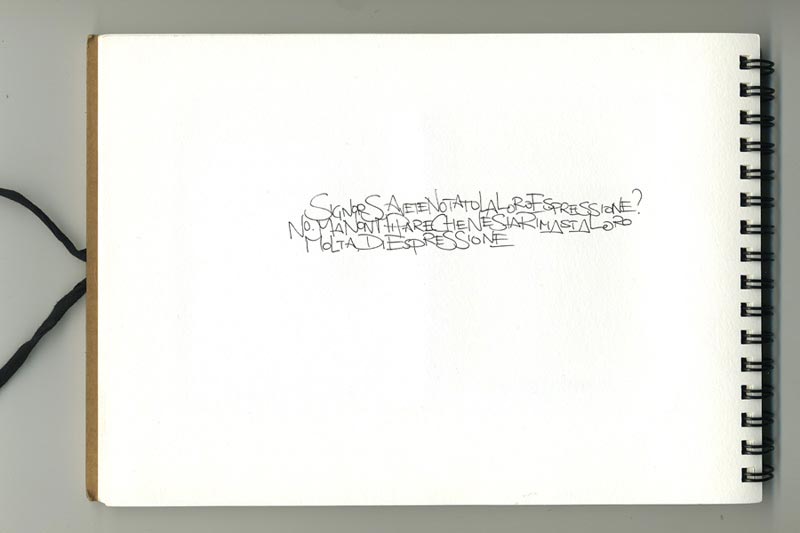 SIGNOR S. AVETE NOTATO LA LORO ESPRESSIONE?
NO. MA NON MI PARE CHE NE SIA RIMASTA LORO
MOLTA DI ESPRESSIONE